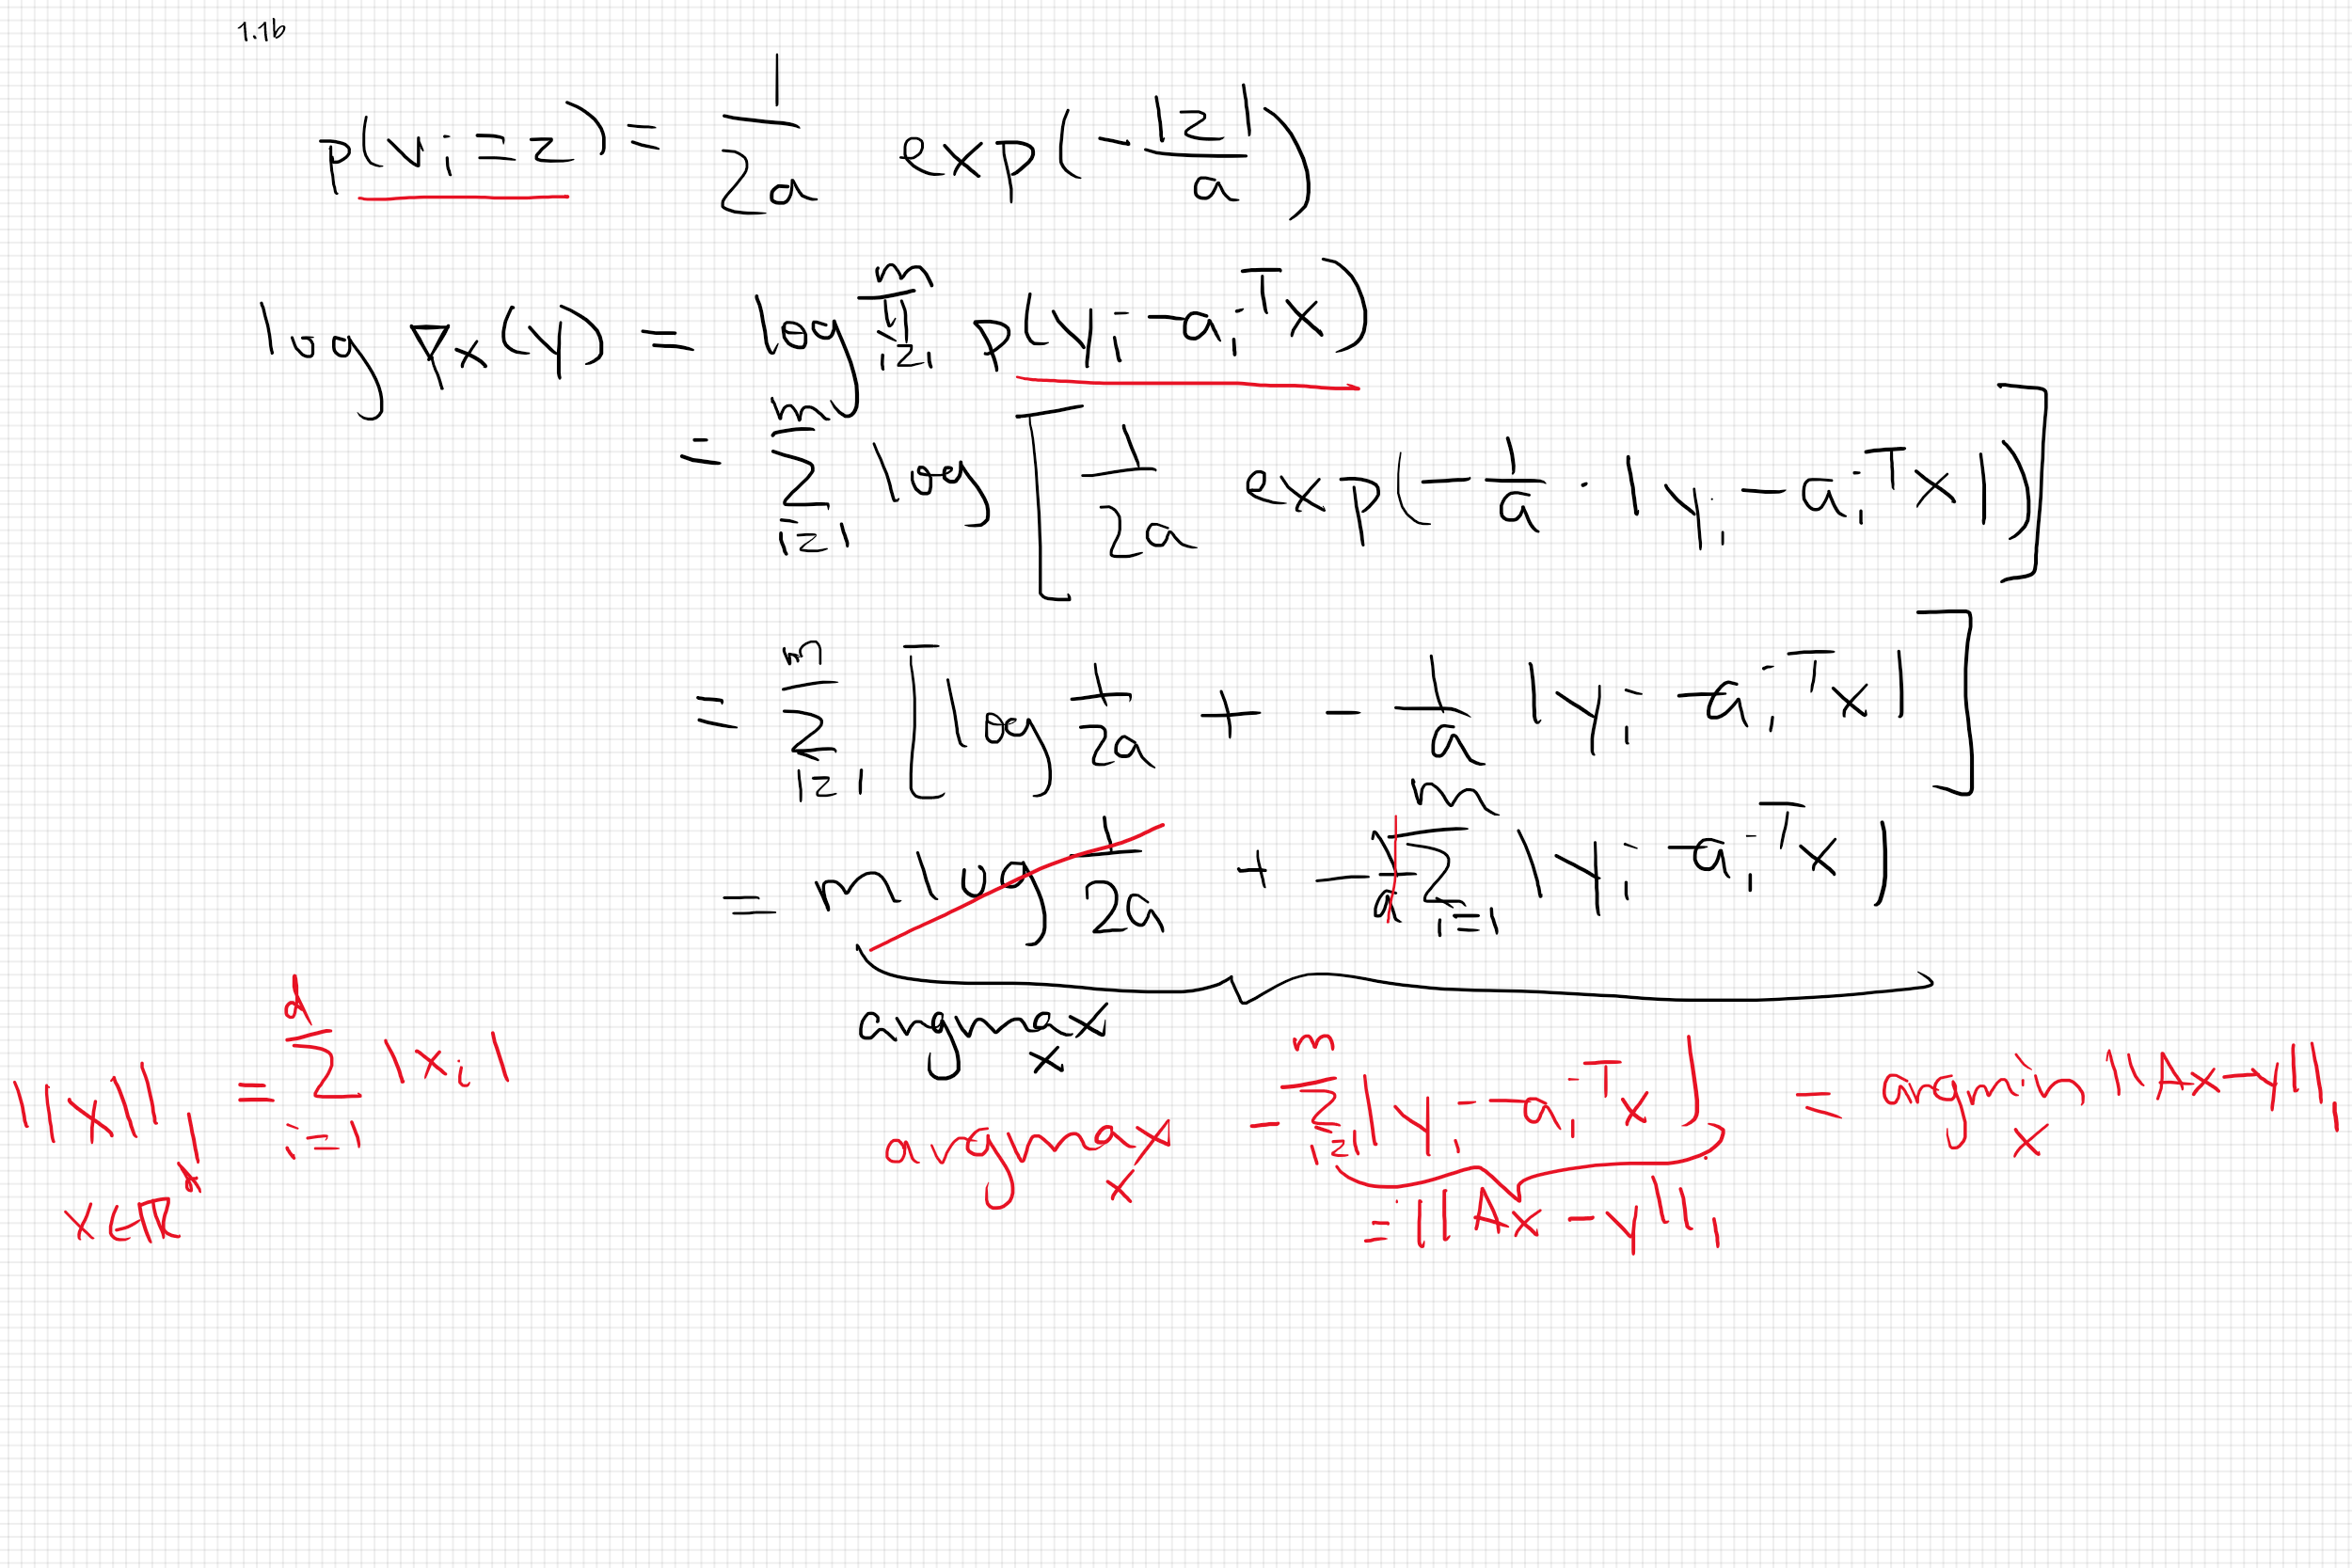 1.1b
p(vᵢ = z) = 1/(2a) exp(-|z|/a)
log pₓ(y) = log ∏ᵢ₌₁ᵐ p(yᵢ - aᵢᵀx)
= Σᵢ₌₁ᵐ log [ 1/(2a) exp(-1/a · |yᵢ - aᵢᵀx|) ]
= Σᵢ₌₁ᵐ [ log 1/(2a) + - 1/a |yᵢ - aᵢᵀx| ]
= m log 1/(2a) + - 1/a Σᵢ₌₁ᵐ |yᵢ - aᵢᵀx|
argmax x
||x||₁ = Σᵢ₌₁ᵈ |xᵢ|
x ∈ ℝᵈ
argmax x - Σᵢ₌₁ᵐ |yᵢ - aᵢᵀx| = argmin x ||Ax - y||₁
= ||Ax - y||₁